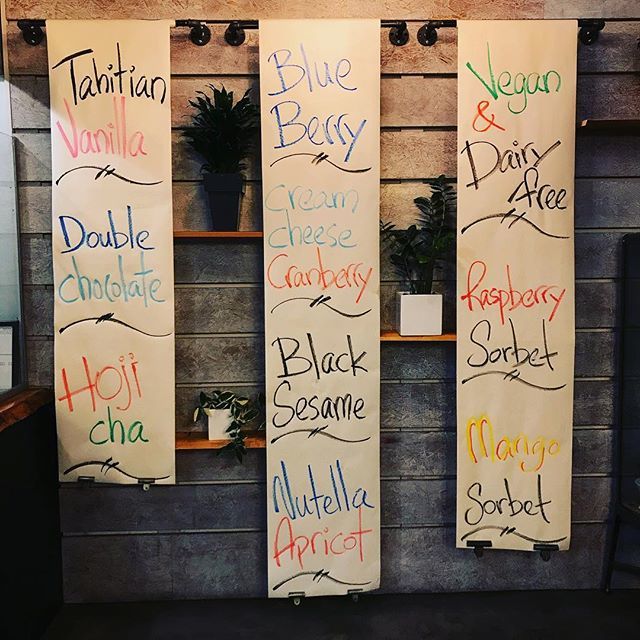 Tahitian
Vanilla
Double
chocolate
Hoji
cha
Blue
Berry
cream
cheese
Cranberry
Black
Sesame
Nutella
Apricot
Vegan
&
Dairy
free
Raspberry
Sorbet
Mango
Sorbet